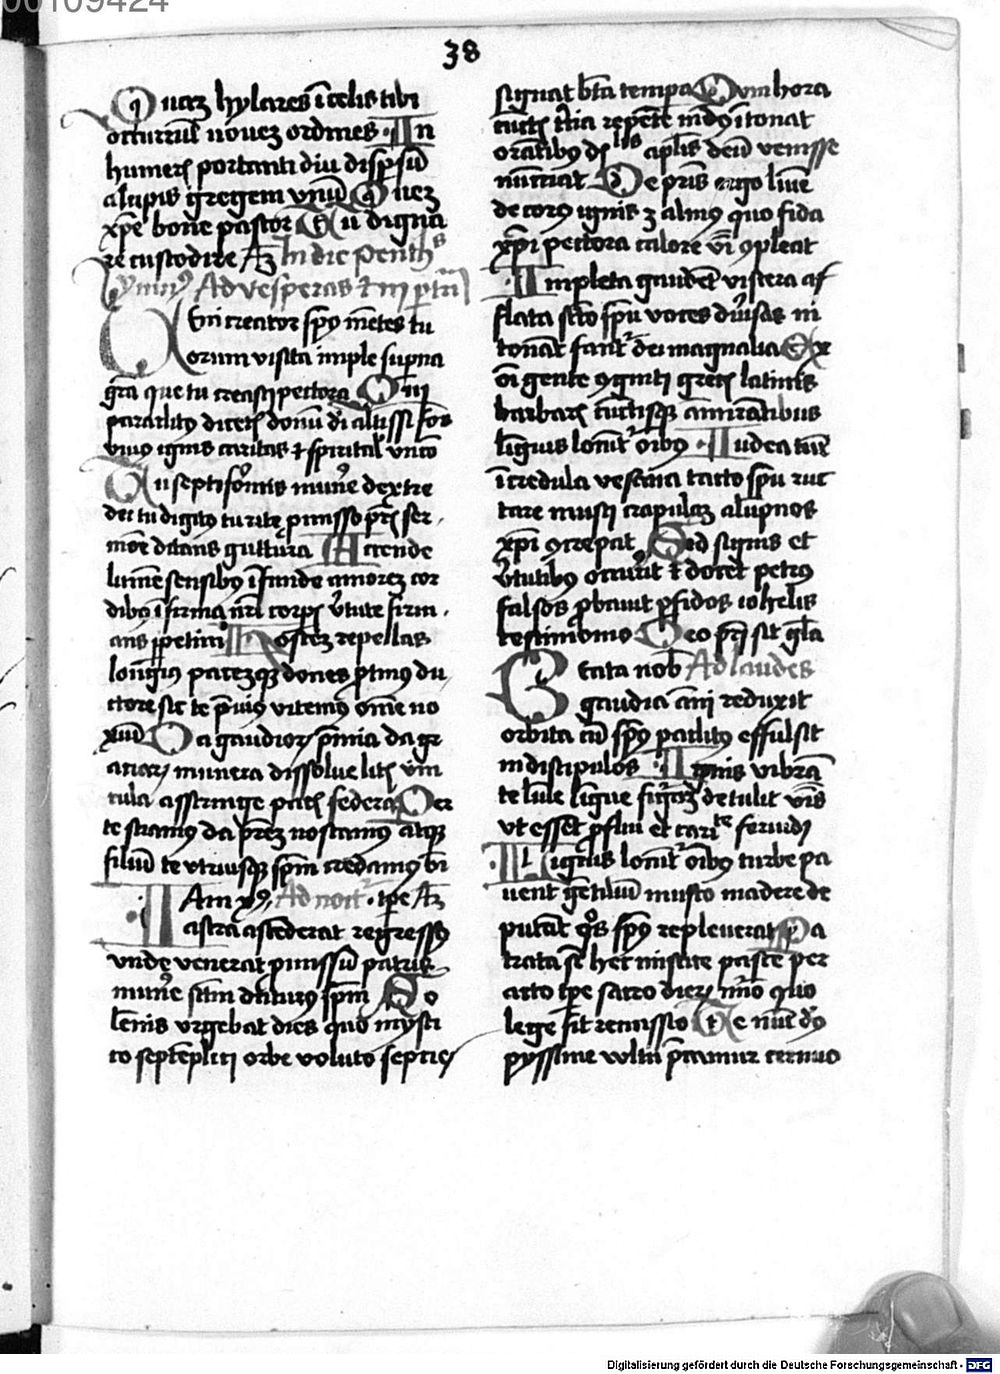 00109424
38
Quaz hylares ī celis tibi
occurrūt nouez ordines · In
humeris portanti diu dispsū
a lupis gregem vnū Quez
xp̄e bone pastor Tu digna
re custodire Az In die penth
Ymnus Ad vesperas
Veni creator spūs mētes tu
orum visita imple supna
grā que tu creasti pectora Qui
paraclitus diceris donū dī altissi fōs
viuus ignis caritas et spiritał vnctō
Tu septiformis munere dextre
dei tu digitus tu rite pmisso pris ser
mōe ditans guttura Accende
lumē sensibus īfunde amorez cor
dibus īfirma nrī corpis v̄tute firm
ans ppetim Hostez repellas
longius pacezqz dones ptinus du
ctore sic te p̄uio vitemus ōme no
xiū Da gaudiorz p̄mia da gr
aciarz munera dissolue litis vin
cula asstringe pacis federa Per
te sciamus da p̄rez noscamus atqz
filiū te vtriusqz spm credamus ōi
tpe Az Ad noct
Iam xps
astra ascederat regressus
vnde venerat pmissū patris
munere scm daturus spm So
lēnis vrgebat dies quo mysti
co septēplici orbe volutus septies
signat bt̄a tempa Cum hora
cūctis tcia repēte mdus ītonat
orātibus aplis deū venisse
nūnciat De pris ergo lumē
decorus ignis z almus quo fida
xpī pectora calore v̄bi 9pleat
Impleta gaudēt viscera af
flata scto spū voces diuisas in
tonāt fant dei magnalia Ex
ōi gente 9gniti grecis latinis
barbaris cūctisqz āmirātibus
līguis loniit ōibus · Iudea tūc
īcredula vesana tacto spū ruc
tare musti crapulaz alupnos
xpī 9crepat Sed signis et
v̄tutibus occurrit et docet petrus
falsos pbauit pfidos iohelis
testimonio Deo pri sit gła
Beata nob Ad laudes
gaudia āni reduxit
orbita cū spūs paclitus effulsit
in discipulos · Ignis vibrā
te lumie līgue figuraz detulit v̄bis
vt essēt pflui et carite feruidi
Liguis loniit ōibus turbe pa
uent gētiliū musto madere de
putāt q̄s spūs repleuerat Pa
trata st hec mistice pasce per
acto tpe sacro dierz nūo quo
lege fit remissio Te nūc dus
pyssime vultu p̄camur cernuo
Digitalisierung gefördert durch die Deutsche Forschungsgemeinschaft - DFG